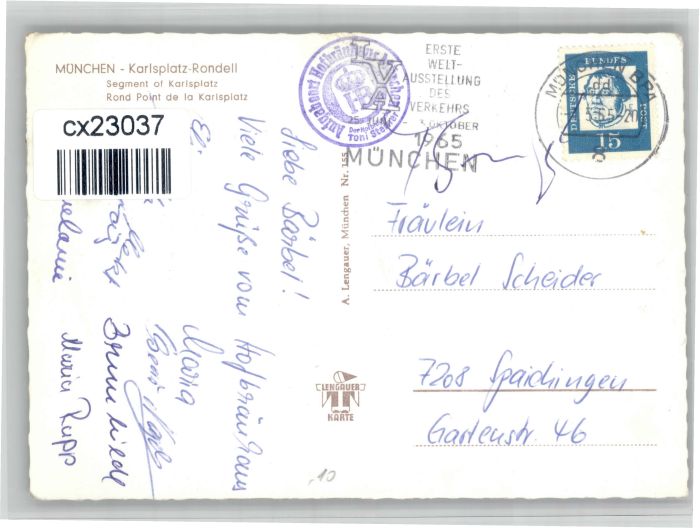 MÜNCHEN - Karlsplatz-Rondell
Segment of Karlsplatz
Rond Point de la Karlsplatz
cx23037
Liebe Bärbel!
Viele Grüße vom Hofbräuhaus
Maria
Maria Rupp
A. Lengauer, München Nr. 155
LENGAUER
KARTE
Aufgabeort Hofbräuhaus
HB
Toni Steiger
IVA
ERSTE
WELT-
AUSSTELLUNG
DES
VERKEHRS
OKTOBER
1965
MÜNCHEN
MÜNCHEN
DEUTSCHE BUNDESPOST
15
Fräulein
Bärbel Scheider
7208 Spaichingen
Gartenstr. 46
10